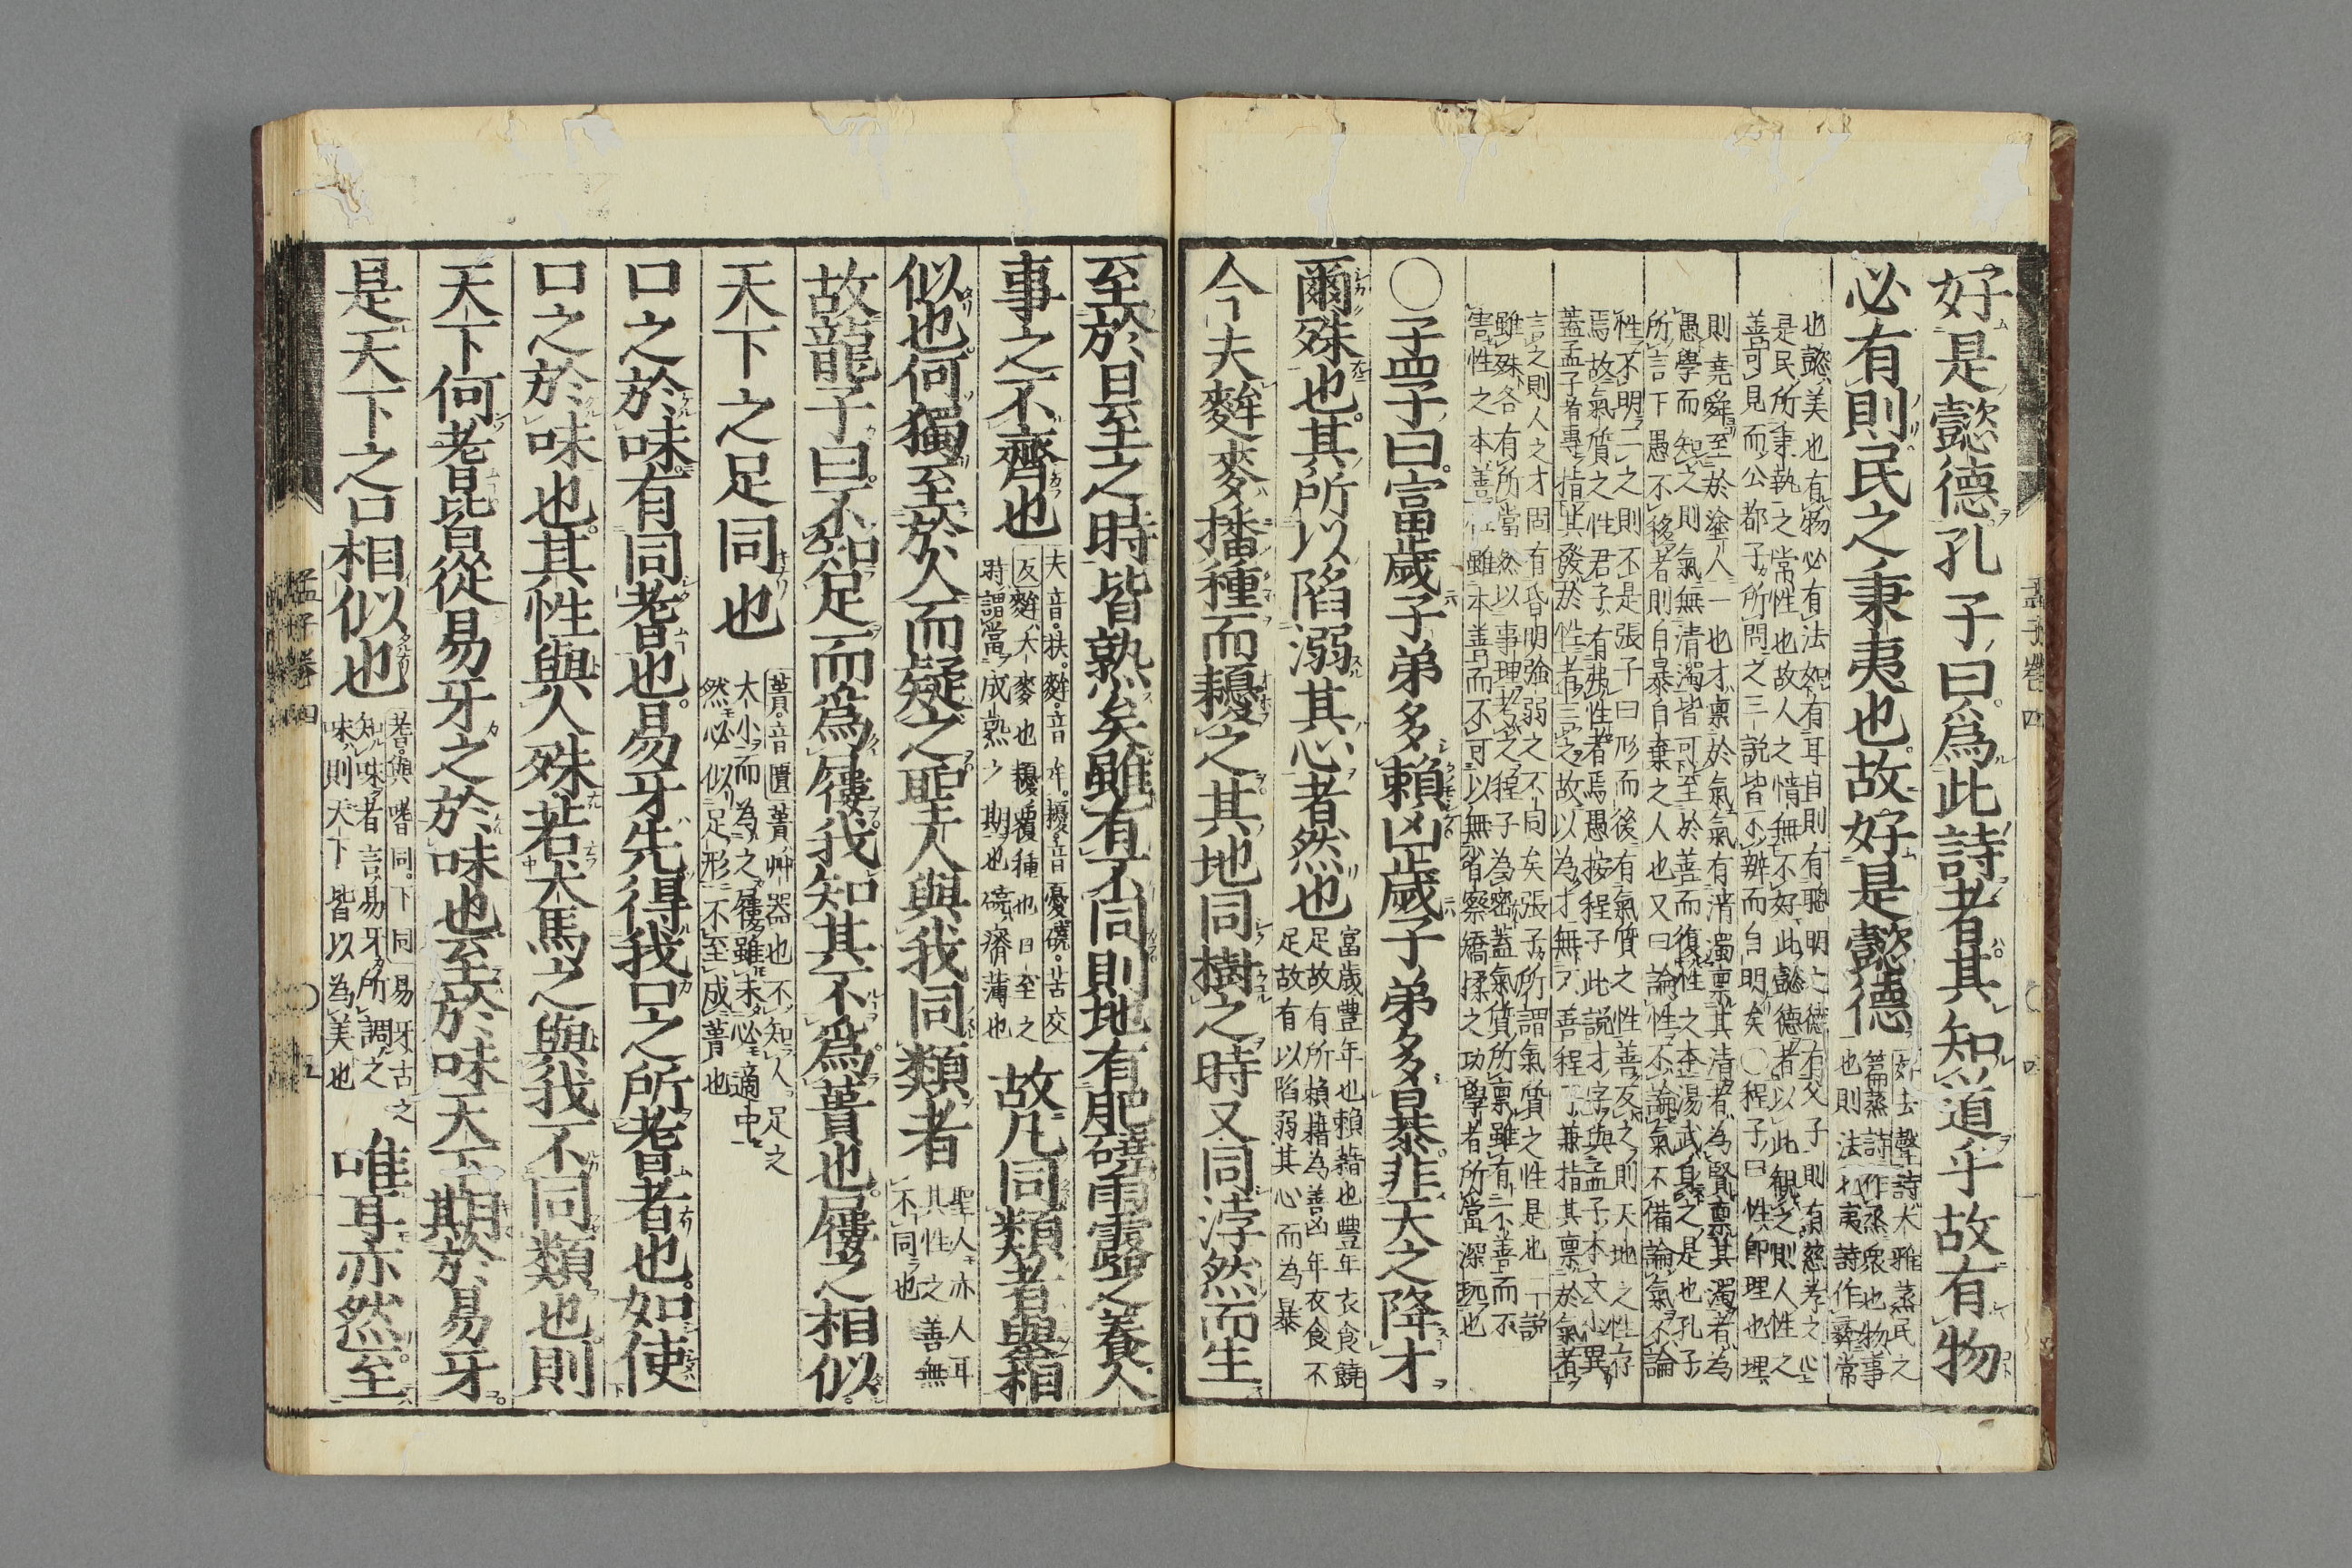 好是懿德孔子曰爲此詩者其知道乎故有物
必有則民之秉夷也故好是懿德
好去聲詩大雅蒸民之
篇蒸詩作烝衆也物事
也則法也夷詩作彝常
也懿美也有物必有法如有耳目則有聰明之德有父子則有慈孝之心
是民所秉執之常性也故人之情無不好此懿德者以此觀之則人性之
善可見而公都子所問之三說皆不辨而自明矣○程子曰性卽理也理
則堯舜至於塗人一也才稟於氣氣有清濁稟其清者為賢稟其濁者為
愚學而知之則氣無清濁皆可至於善而復性之本湯武身之是也孔子
所言下愚不移者則自暴自棄之人也又曰論性不論氣不備論氣不論
性不明二之則不是張子曰形而後有氣質之性善反之則天地之性存
焉故氣質之性君子有弗性者焉愚按程子此說才字與孟子本文小異
蓋孟子者專指其發於性者言之故以為才無不善程子兼指其稟於氣者
言之則人之才固有昏明強弱之不同矣張子所謂氣質之性是也二說
雖殊各有所當然以事理考之程子為密蓋氣質所稟雖有不善而不
害性之本善性雖本善而不可以無省察矯揉之功學者所當深玩也
○孟子曰富歲子弟多賴凶歲子弟多暴非天之降才
爾殊也其所以陷溺其心者然也
富歲豐年也賴藉也豊年衣食饒
足故有所賴藉為善凶年衣食不
足故有以陷溺其心而為暴
今夫麰麥播種而耰之其地同樹之時又同浡然而生
至於日至之時皆熟矣雖有不同則地有肥磽雨露之養人
事之不齊也
夫音扶。麰音牟。耰音憂磽。苦交
反麰大麥也耰覆種也日至之
時謂當成熟之期也磽瘠薄也
故凡同類者舉相
似也何獨至於人而疑之聖人與我同類者
聖人亦人耳
其性之善無
不同也
故龍子曰不知足而爲屨我知其不爲蕢也屨之相似
天下之足同也
蕢音匱蕢艸器也不知人足之
大小而為之屨雖未必適中
然必似足形不至成蕢也
口之於味有同耆也易牙先得我口之所耆者也如使
口之於味也其性與人殊若犬馬之與我不同類也則
天下何耆皆從易牙之於味也至於味天下期於易牙
是天下之口相似也
耆與嗜同。下同易牙古之
知味者言易牙所調之
味則天下皆以為美也
唯耳亦然至
孟子卷四